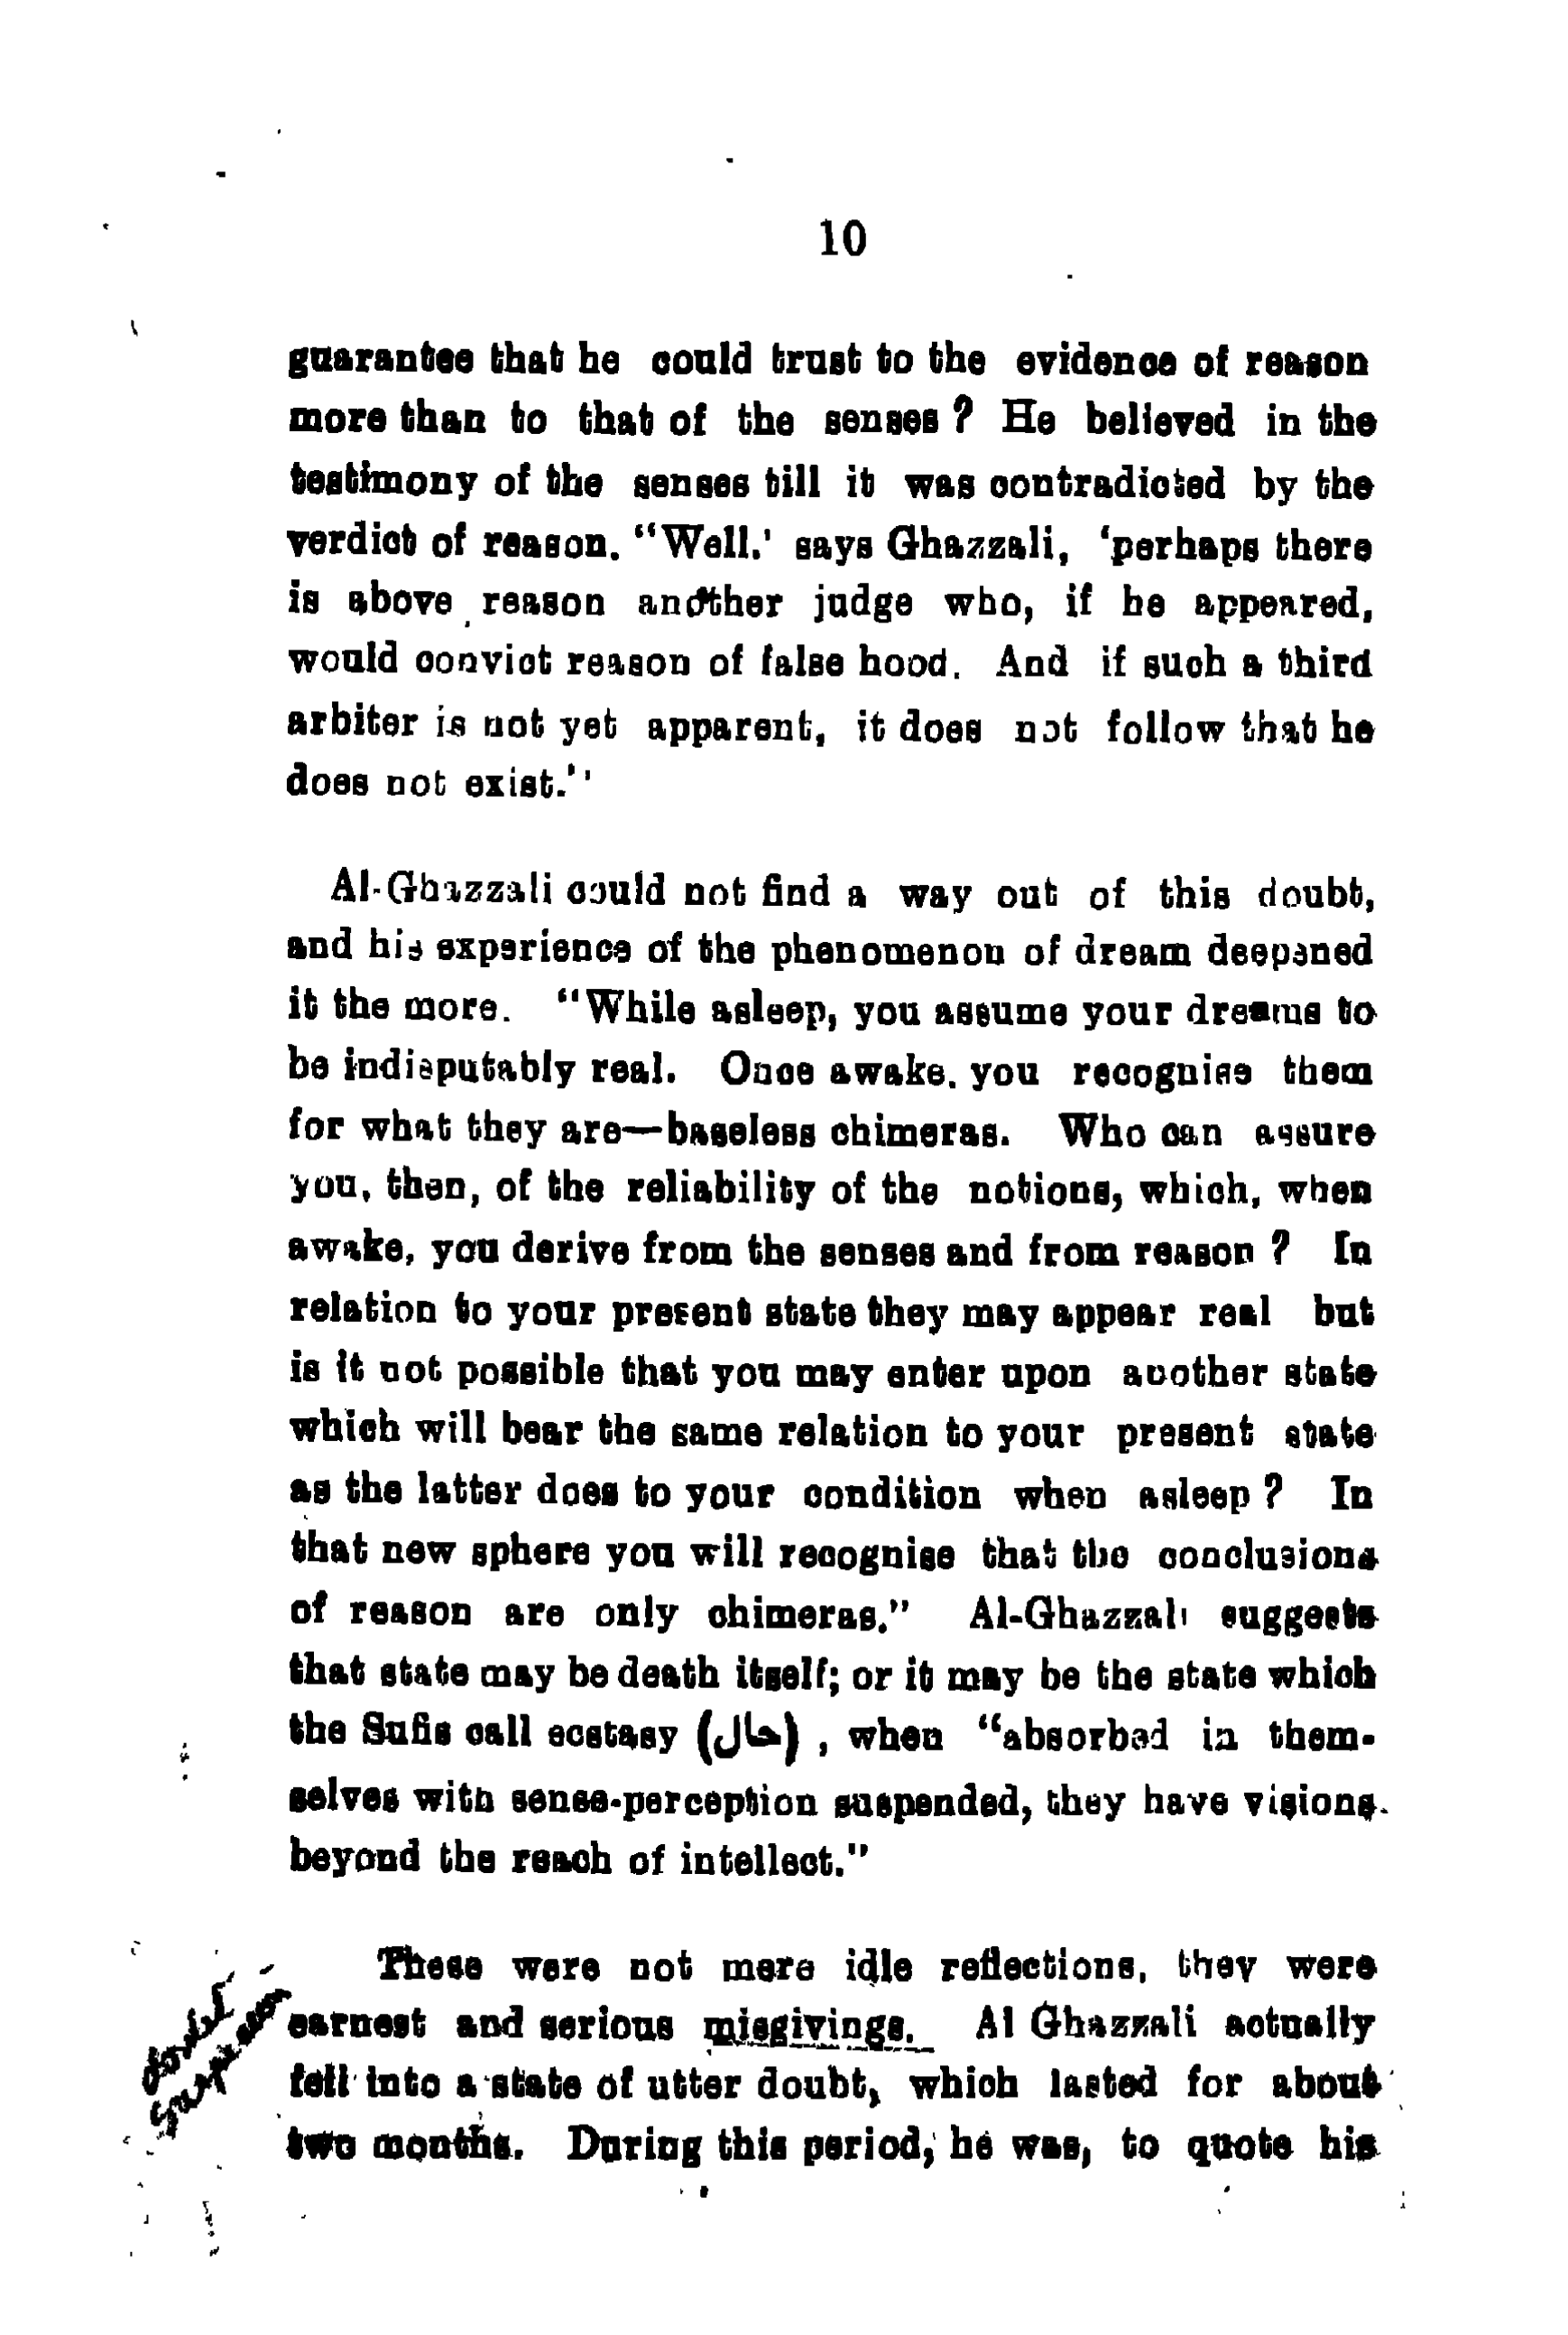 10
guarantee that he could trust to the evidence of reason
more than to that of the senses ? He believed in the
testimony of the senses till it was contradicted by the
verdict of reason. "Well.' says Ghazzali, 'perhaps there
is above reason another judge who, if he appeared,
would convict reason of false hood. And if such a third
arbiter is not yet apparent, it does not follow that he
does not exist.''
Al-Ghazzali could not find a way out of this doubt,
and his experience of the phenomenon of dream deepened
it the more. "While asleep, you assume your dreams to
be indisputably real. Once awake. you recognise them
for what they are—baseless chimeras. Who can assure
you, then, of the reliability of the notions, which, when
awake, you derive from the senses and from reason ? In
relation to your present state they may appear real but
is it not possible that you may enter upon another state
which will bear the same relation to your present state
as the latter does to your condition when asleep ? In
that new sphere you will recognise that the conclusions
of reason are only chimeras." Al-Ghazzali suggests
that state may be death itself; or it may be the state which
the Sufis call ecstasy (حال) , when "absorbed in them-
selves with sense-perception suspended, they have visions
beyond the reach of intellect."
These were not mere idle reflections, they were
earnest and serious misgivings. Al Ghazzali actually
fell into a state of utter doubt, which lasted for about
two months. During this period, he was, to quote his
doubt